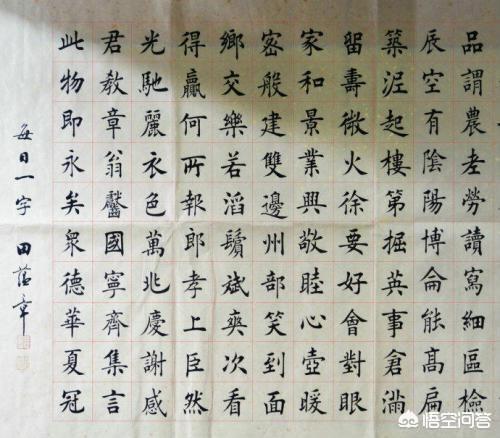 品謂農老勞讀寫細區檢
辰空有陰陽博侖能高扁
築泥起樓第掘英事倉滿
留壽微火徐要好會對眼
家和景業興敬睦心壺暖
密般建雙邊州部笑到面
鄉交樂若滔鬚斌爽次看
得贏何所報郎孝上臣然
光馳麗衣色萬兆慶謝感
君教章翁馨國寧齊集言
此物即永矣眾德華夏冠
每日一字 田蘊章
悟空问答